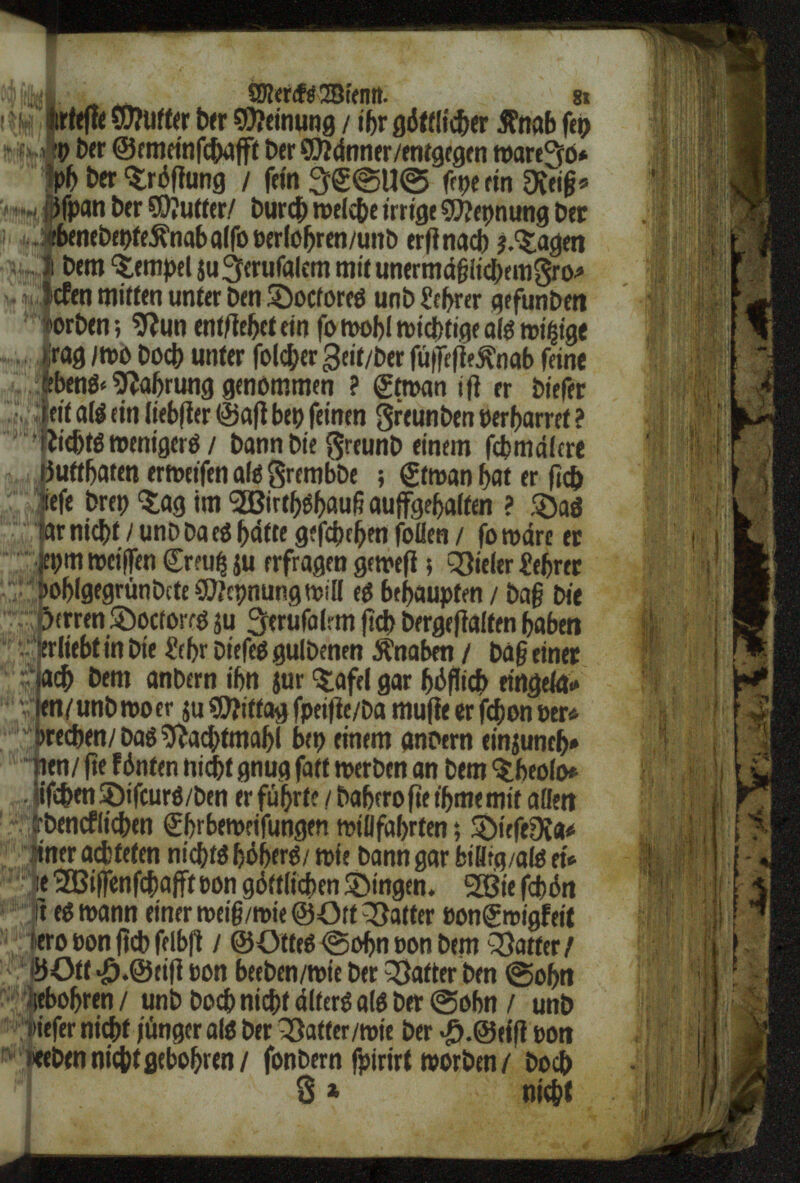 Mercks Wienn. 81
irteste Mutter der Meinung / ihr göttlicher Knab sey
der Gemeinschafft der Männer/entgegen ware Jo-
ph der Tröstung / sein JESUS seye ein Reiß-
span der Mutter/ durch welche irrige Meynung der
ebenedeyte Knab also verlohren/und erst nach 3. Tagen
dem Tempel zu Jerusalem mit unermäßlichem Fro-
cken mitten unter den Doctores und Lehrer gefunden
orden; Nun entstehet ein so wohl wichtige als witzige
rag / wo doch unter solcher Zeit/der süsseste Knab seine
ebens-Nahrung genommen ? Etwan ist er dieser
eit als ein liebster Gast bey seinen Freunden verharret ?
Nichts wenigers / dann die Freund einem schmälere
Gutthaten erweisen als Frembde ; Etwan hat er sich
iese drey Tag im Wirthshauß auffgehalten ? Das
ar nicht / und da es hätte geschehen sollen / so wäre er
eym weissen Creutz zu erfragen gewest ; Vieler Lehrer
wohlgegründete Meynung will es behaupten / daß die
Herren Doctores zu Jerusalem sich dergestalten haben
erliebt in die Lehr dieses guldenen Knaben / daß einer
ach dem andern ihn zur Tafel gar höflich eingela-
en/ und wo er zu Mittag speiste/da muste er schon ver-
prechen/ das Nachtmahl bey einem andern einzuneh-
men/ sie könten nicht gnug satt werden an dem Theolo-
ischen Discurs/den er führte / dahero sie ihme mit allen
rdencklichen Ehrbeweisungen willfahrten ; Diese Ra-
iner achteten nichts höhers/ wie dann gar billig/als ei-
e Wissenschafft von göttlichen Dingen. Wie schön
ist es wann einer weiß/wie GOtt Vatter von Ewigkeit
ero von sich selbst / GOttes Sohn von dem Vatter /
GOtt H. Geist von beeden/wie der Vatter den Sohn
gebohren / und doch nicht älters als der Sohn / und
dieser nicht jünger als der Vatter/wie der H. Geist von
beeden nicht gebohren / sondern spirirt worden / doch
F 2 nicht